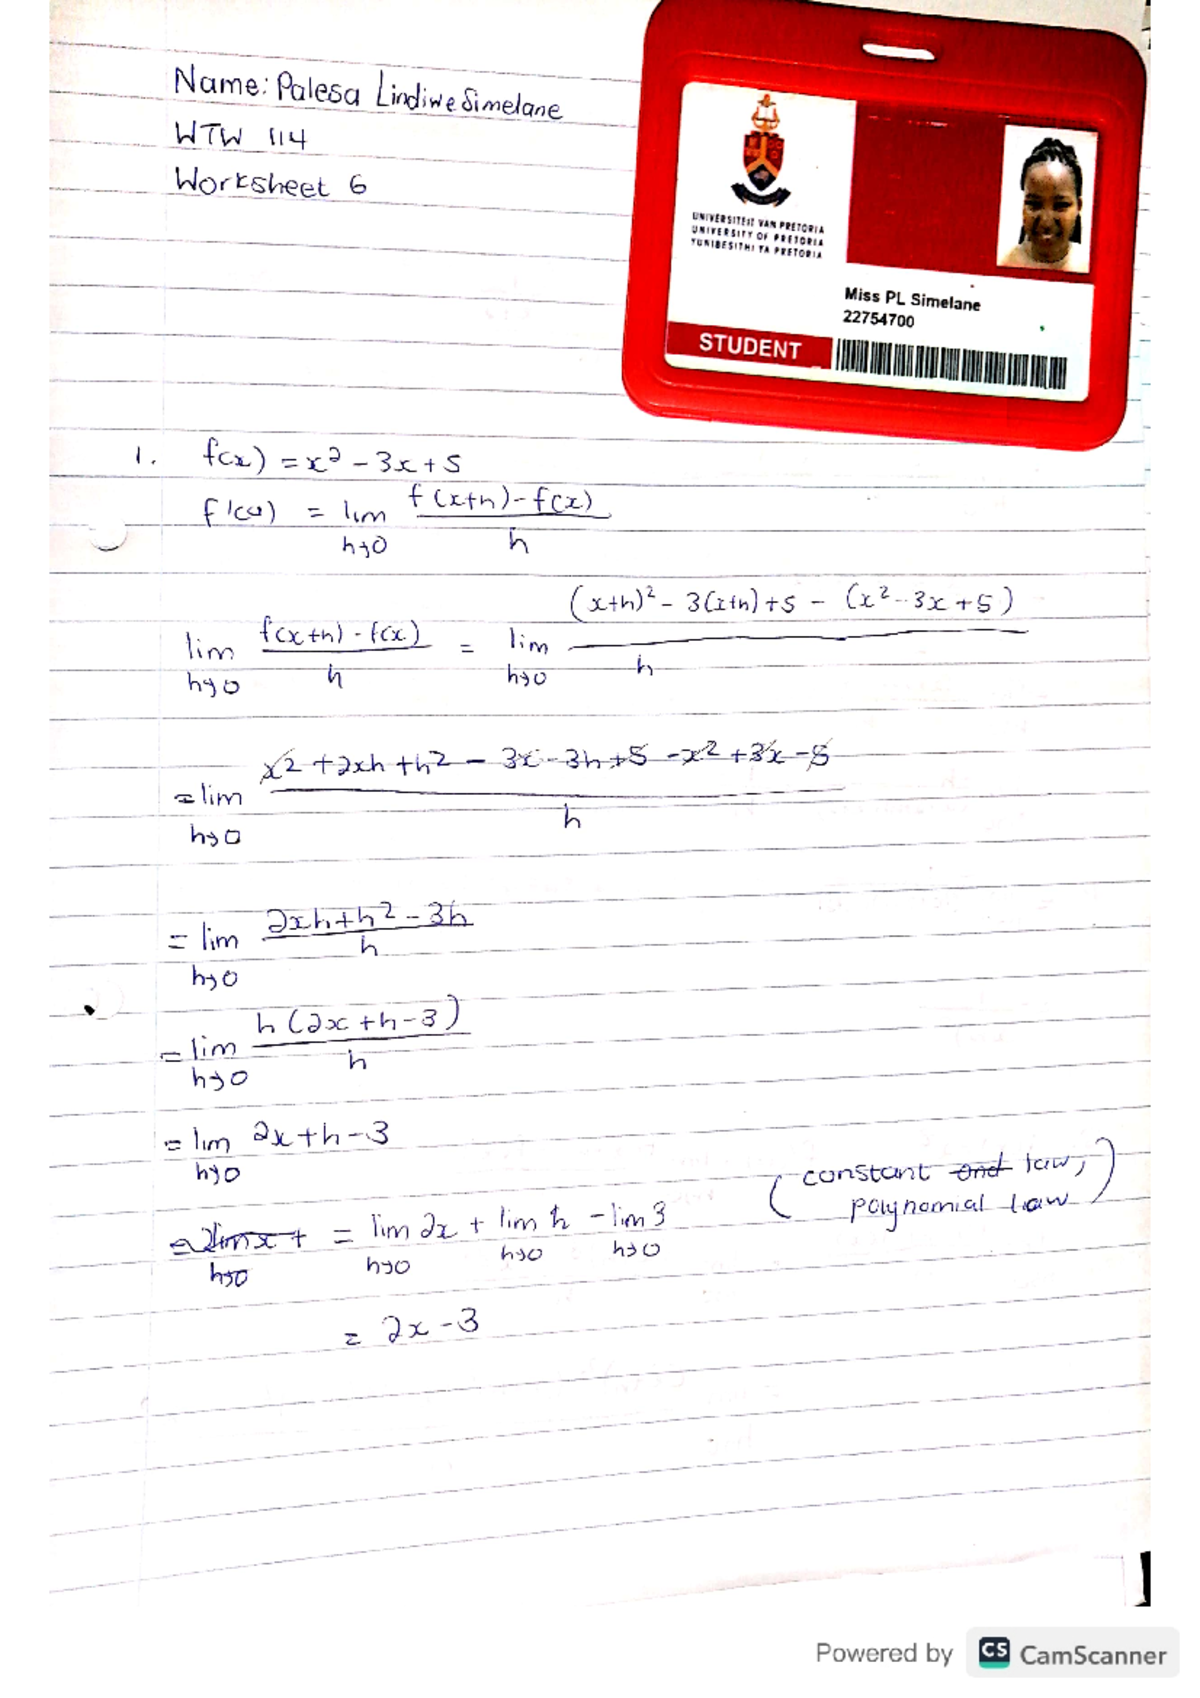 Name: Palesa Lindiwe Simelane
WTW 114
Worksheet 6
UNIVERSITEIT VAN PRETORIA
UNIVERSITY OF PRETORIA
YUNIBESITHI YA PRETORIA
Miss PL Simelane
22754700
STUDENT
1. f(x) = x² - 3x + 5
f'(x) = lim h→0 (f(x+h) - f(x)) / h
lim h→0 (f(x+h) - f(x)) / h = lim h→0 ((x+h)² - 3(x+h) + 5 - (x² - 3x + 5)) / h
= lim h→0 (x² + 2xh + h² - 3x - 3h + 5 - x² + 3x - 5) / h
= lim h→0 (2xh + h² - 3h) / h
= lim h→0 h(2x + h - 3) / h
= lim h→0 2x + h - 3
(constant and law, polynomial law)
= 2 lim h→0 x + = lim h→0 2x + lim h→0 h - lim h→0 3
= 2x - 3
Powered by CS CamScanner